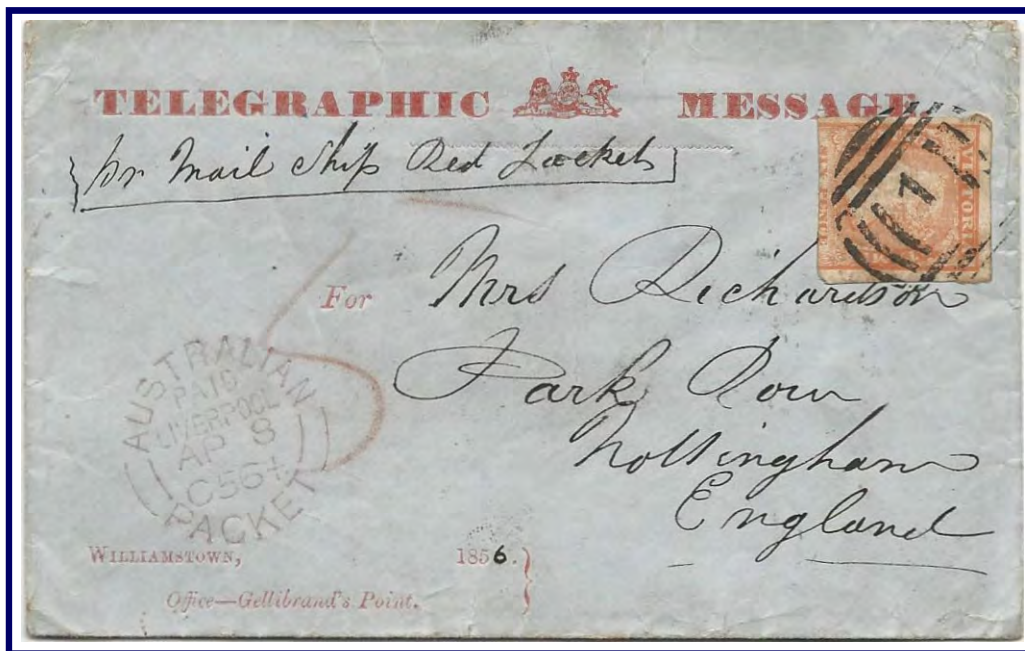 TELEGRAPHIC MESSAGE.
pr Mail Ship Red Jacket
VICTORIA
1
For Mrs Richardson
Park Row
Nottingham
England
AUSTRALIAN
PAID
LIVERPOOL
AP 8
C56
PACKET
WILLIAMSTOWN, 1856.
Office—Gellibrand's Point.